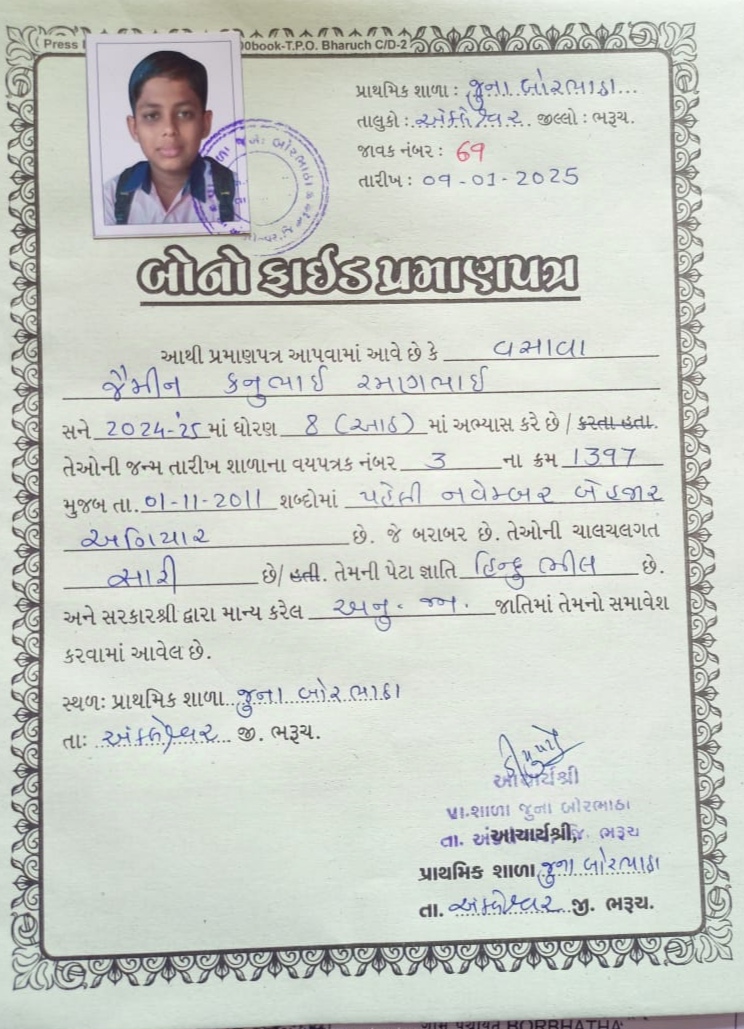 Press
00book-T.P.O. Bharuch C/D-2
પ્રાથમિક શાળા : જુના બોરભાઠા...
તાલુકો : અંકલેશ્વર. જીલ્લો : ભરૂચ.
જાવક નંબર : 69
તારીખ : 09-01-2025
બોનો ફાઈડ પ્રમાણપત્ર
આથી પ્રમાણપત્ર આપવામાં આવે છે કે વસાવા
જૈમીન કનુભાઈ રમાગભાઈ
સને 2024-'25 માં ધોરણ 8 (આઠ) માં અભ્યાસ કરે છે / કરતા હતા.
તેઓની જન્મ તારીખ શાળાના વયપત્રક નંબર 3 ના ક્રમ 1397
મુજબ તા. 01-11-2011 શબ્દોમાં પહેલી નવેમ્બર બેહજાર
અગિયાર છે. જે બરાબર છે. તેઓની ચાલચલગત
સારી છે/ હતી. તેમની પેટા જ્ઞાતિ હિન્દુ ભીલ છે.
અને સરકારશ્રી દ્વારા માન્ય કરેલ અનુ. જન. જાતિમાં તેમનો સમાવેશ
કરવામાં આવેલ છે.
સ્થળઃ પ્રાથમિક શાળા જુના બોરભાઠા
તાઃ અંકલેશ્વર જી. ભરૂચ.
આચાર્યશ્રી
પ્રા.શાળા જુના બોરભાઠા
તા. જિ. ભરૂચ
આચાર્યશ્રી,
પ્રાથમિક શાળા જુના બોરભાઠા
તા. અંકલેશ્વર જી. ભરૂચ.
ગ્રામ પંચાયત BORBHATHA